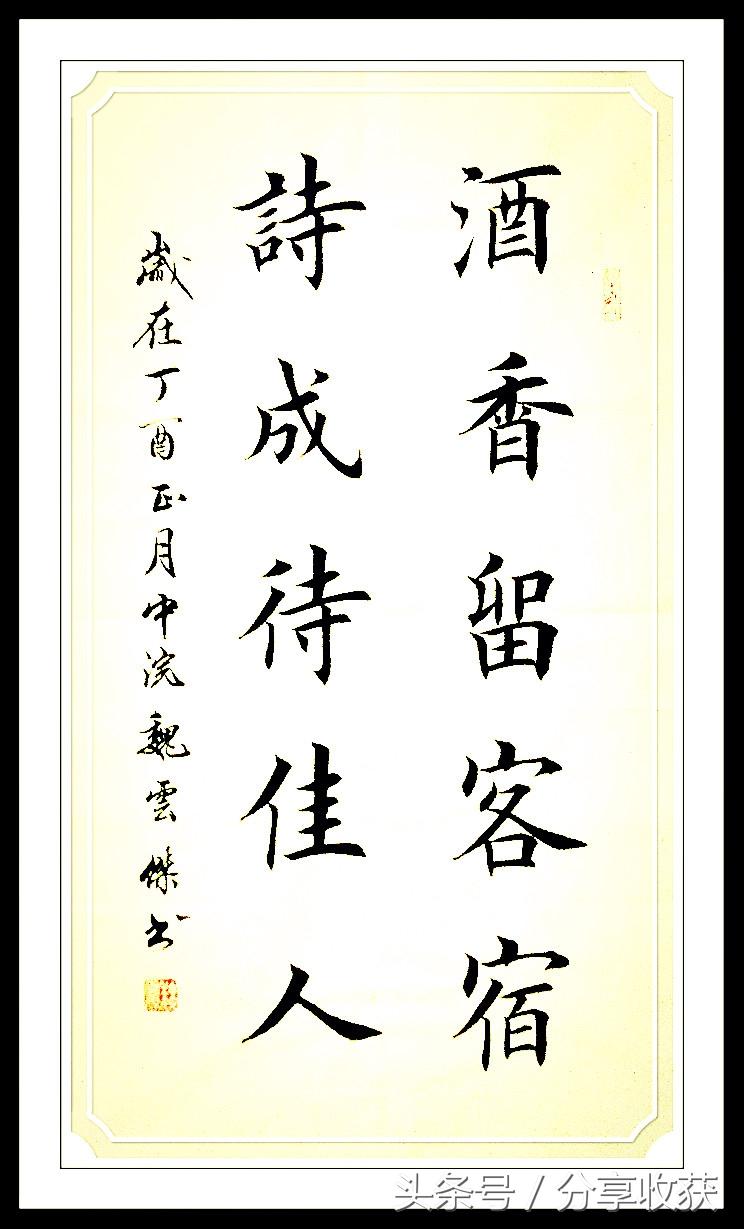 酒香留客宿
詩成待佳人
歲在丁酉正月中浣魏雲傑书
头条号 / 分享收获